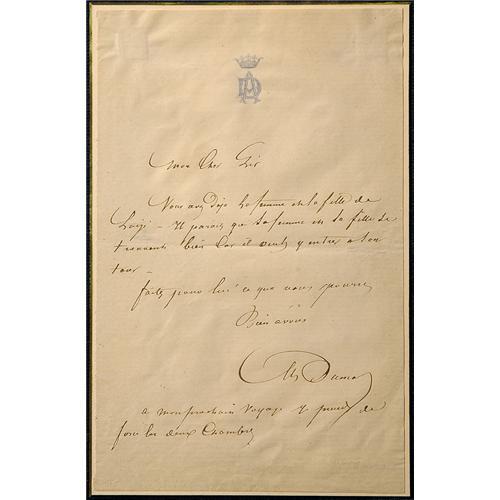 AD
Mon cher Gir
Vous avez deja la femme et la fille de
Luigi - Il parait que la femme et la fille se
trouvent bien car il veut y entrer a son
tour -
faites pour lui ce que vous pourrez
Bien a vous
Alex Dumas
a mon prochain voyage je prendrai de
les deux Chambres